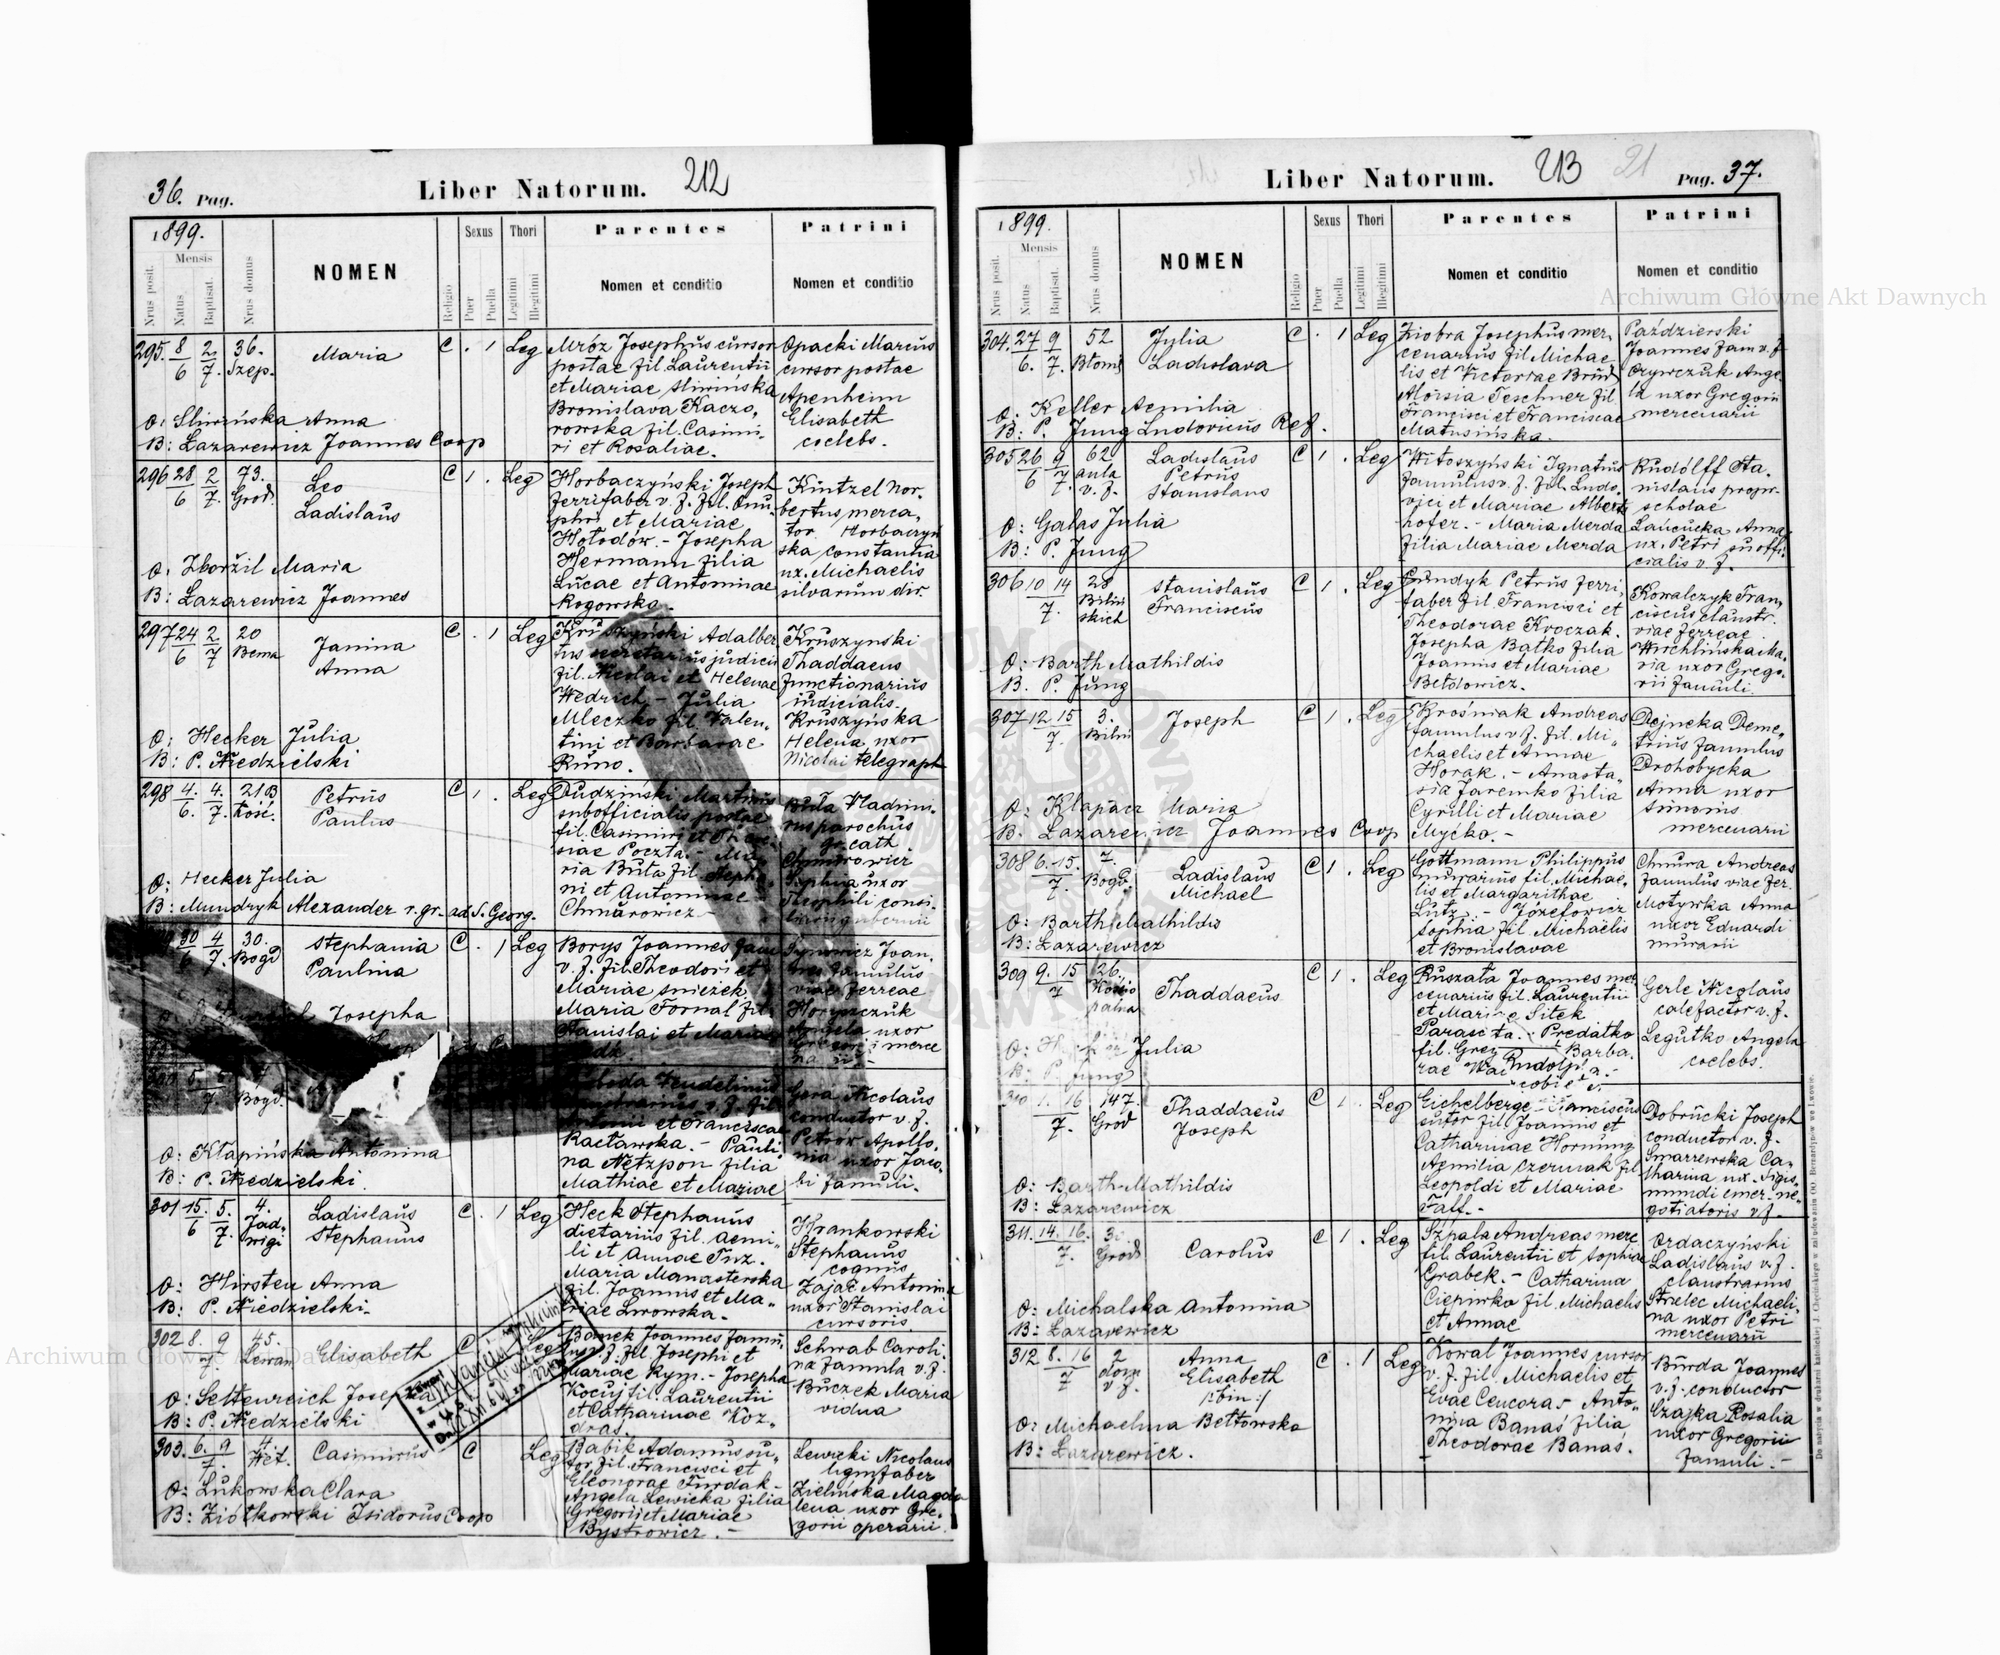 36. Pag.
Liber Natorum.
212
1899.
Mensis
Nrus posit.
Natus
Baptisat.
Nrus domus
NOMEN
Religio
Sexus
Puer
Puella
Thori
Legitimi
Illegitimi
Parentes
Nomen et conditio
Patrini
Nomen et conditio
295. 8/6 2/7. 36. Szep.
Maria
C . 1 Leg
Mróz Josephus cursor
postae fil. Laurentii
et Mariae Sliwińska
Bronislava Kaczo,
rowska fil. Casimi,
ri et Rosaliae.
Opacki Marcus
cursor postae
Apenheim
Elisabeth
coelebs.
O: Sliwińska Anna
B: Lazarewicz Joannes Coop
296 28/6 2/7. 73. Grod.
Leo
Ladislaus
C 1 . Leg
Horbaczyński Joseph
ferrifaber v. f. fil. Onu,
phri et Mariae
Hołodów. - Josepha
Hermann filia
Lucae et Antoninae
Rogowska.
Kintzel Nor,
bertus merca,
tor. Horbaczyń
ska Constantia
ux. Michaelis
silvarum dir.
O: Zbořžil Maria
B: Lazarewicz Joannes
297 24/6 2/7 20 Bema
Janina
Anna
C . 1 Leg
Kruszyński Adalber
tus secretarius judicii
fil. Nicolai et Helenae
Wedrich - Julia
Mleczko fil. Valen,
tini et Barbarae
Kuno.
Kruszynski
Thaddaeus
functionarius
iudicialis.
Kruszyńska
Helena uxor
Nicolai telegraph
O: Hecker Julia
B: P. Niedzielski
298 4./6. 4./7. 21B Kość.
Petrus
Paulus
C 1 . Leg
Dudziński Martinus
subofficialis postae
fil. Casimiri et
siae Poczta. - Ma,
ria Buła fil. Stepha,
ni et Antoninae
Chmurowicz -
Buła Vladimi,
rus parochus
gr. cath
uxor
O: Hecker Julia
B: Mundryk Alexander r. gr. ad S. Georg.
30/6 4/7. 30. Bogd
Stephania
Paulina
C . 1 Leg
Borys Joannes fam
v. f. fil. Theodori et
Mariae Sniežek
Maria Fornal fil.
Stanislai et Mariae
Joan,
nes famulus
viae ferreae
Horyszczuk
Angela uxor
Gregorii merce
Josepha
Bogd.
et Franciscae
Racławska. - Pauli,
na Netzpon filia
Mathiae et Mariae
Gera Nicolaus
conductor v. f.
Petrow Apollo,
nia uxor Jaco,
bi famuli.
O: Kłapińska Antonina
B: P. Niedzielski.
301 15./6 5./7. 4. Jad, wigi
Ladislaus
Stephanus
C . 1 Leg
Heck Stephanus
dietarius fil. Aemi,
li et Annae Inz.
Maria Manasterska
fil. Joannis et Ma,
riae Lwowska.
Hrankowski
Stephanus
coquus
Zając Antonina
uxor Stanislai
cursoris
O: Hirsten Anna
B: P. Niedzielski.
302 8. 9/7. 45. Lewan
Elisabeth
C Leg
Bomek Joannes famu,
lus v. f. fil. Josephi et
Mariae Rym. - Josepha
Kocuj fil. Laurentii
et Catharinae Koz,
dras.
Schwab Caroli,
na famula v. f.
Buczek Maria
vidua
O: Seltenreich Josepha
B: P. Niedzielski
303. 6. 9/7. 4. Wet.
Casimirus
C Leg
Babik Adamus su,
tor fil. Francisci et
Eleonorae Furdak -
Angela Lewicka filia
Gregorii et Mariae
Bystrowicz. -
Lewicki Nicolaus
lignifaber
Zielińska Magda
lena uxor Gre,
gorii operarii.
O: Lukowska Clara
B: Ziółkowski Isidorus Coop
Liber Natorum.
213
21
Pag. 37.
1899.
Mensis
Nrus posit.
Natus
Baptisat.
Nrus domus
NOMEN
Religio
Sexus
Puer
Puella
Thori
Legitimi
Illegitimi
Parentes
Nomen et conditio
Patrini
Nomen et conditio
304. 27/6. 9/7. 52 Błonie
Julia
Ladislava
C . 1 Leg
Ziobra Josephus mer,
cenarius fil. Michae
lis et Victoriae Brud
Aloisia Teschner fil
Francisci et Franciscae
Matusińska.
Paździerski
Joannes fam v. f.
Czywczuk Ange,
la uxor Gregorii
mercenarii
O: Keller Aemilia
B: P. Jung Ludovicus Ref.
305 26/6 9/7. 62 aula v. f.
Ladislaus
Petrus
Stanislaus
C 1 . Leg
Witoszyński Ignatius
famulus v. f. fil. Ludo,
vici et Mariae Alberts
hofer. - Maria Merda
filia Mariae Merda
Rudolff Sta,
nislaus propr.
scholae
Laucucka Anna
ux. Petri suboffi,
cialis v. f.
O: Galas Julia
B: P. Jung
306 10 14/7. 28 Biliń skich
Stanislaus
Franciscus
C 1 . Leg
Gundyk Petrus ferri,
faber fil. Francisci et
Theodorae Kroczak.
Josepha Batko filia
Joannis et Mariae
Bełdowicz.
Kowalczyk Fran,
ciscus claustr.
viae ferreae
Wichlińska Ma,
ria uxor Grego,
rii famuli.
O: Barth Mathildis
B. P. Jung
307 12 15/7. 3. Biliń
Joseph
C 1 . Leg
Krośniak Andreas
famulus v. f. fil. Mi,
chaelis et Annae
Horak. - Anasta,
sia Jaremko filia
Cyrilli et Mariae
Myćko. -
Dejneka Deme,
trius famulus
Drohobycka
Anna uxor
Simonis
mercenarii
O: Klapacz Maria
B. Lazarewicz Joannes Coop
308 6. 15./7. 7. Bogd.
Ladislaus
Michael
C 1 . Leg
Gottmann Philippus
murarius fil. Michae,
lis et Margarithae
Lutz. - Józefowicz
Sophia fil. Michaelis
et Bronislavae
Chmura Andreas
famulus viae fer.
Motywka Anna
uxor Eduardi
murarii
O: Barth Mathildis
B: Lazarewicz
309 9. 15/7 26.
Thaddaeus
C 1 . Leg
Ruszała Joannes mer
cenarius fil. Laurentii
et Mariae Sitek
Parasceta. Predatko
fil. Greg Barba,
rae
Rudolp
Gerle Nicolaus
calefactor v. f.
Legutko Angela
coelebs.
O: Julia
B: P. Jung
310 1. 16/7. 147. Grod
Thaddaeus
Joseph
C 1 . Leg
Eichelberger Franciscus
sutor fil. Joannis et
Catharinae Hornung
Aemilia Czermak fil
Leopoldi et Mariae
Faff. -
Dobrucki Joseph
conductor v. f.
Smarzewska Ca,
tharina ux. Sigis,
mundi emer. ne,
gotiatoris v. f.
O: Barth Mathildis
B: Lazarewicz
311. 14. 16./7. 30 Grod
Carolus
C 1 . Leg
Szpala Andreas merc
fil. Laurentii et Sophiae
Grabek. - Catharina
Ciepinko fil. Michaelis
et Annae
Ordaczyński
Ladislaus v. f.
claustrarius
Strzelec Michaeli,
na uxor Petri
mercenarii
O: Michalska Antonina
B: Lazarewicz
312 8. 16/7 2 dom v. f.
Anna
Elisabeth
/:bin:/
C . 1 Leg
Kowal Joannes cursor
v. f. fil. Michaelis et
Evae Cencora - Anto,
nina Banaś filia
Theodorae Banaś.
Burda Joannes
v. f. conductor
Czajka Rosalia
uxor Gregorii
famuli. -
O: Michaelina Bełtowska
B: Lazarewicz.
Do nabycia w drukarni katolickiej J. Chęcińskiego w zabudowaniu OO. Bernardynów we Lwowie.
Archiwum Główne Akt Dawnych
Archiwum Główne Akt Dawnych